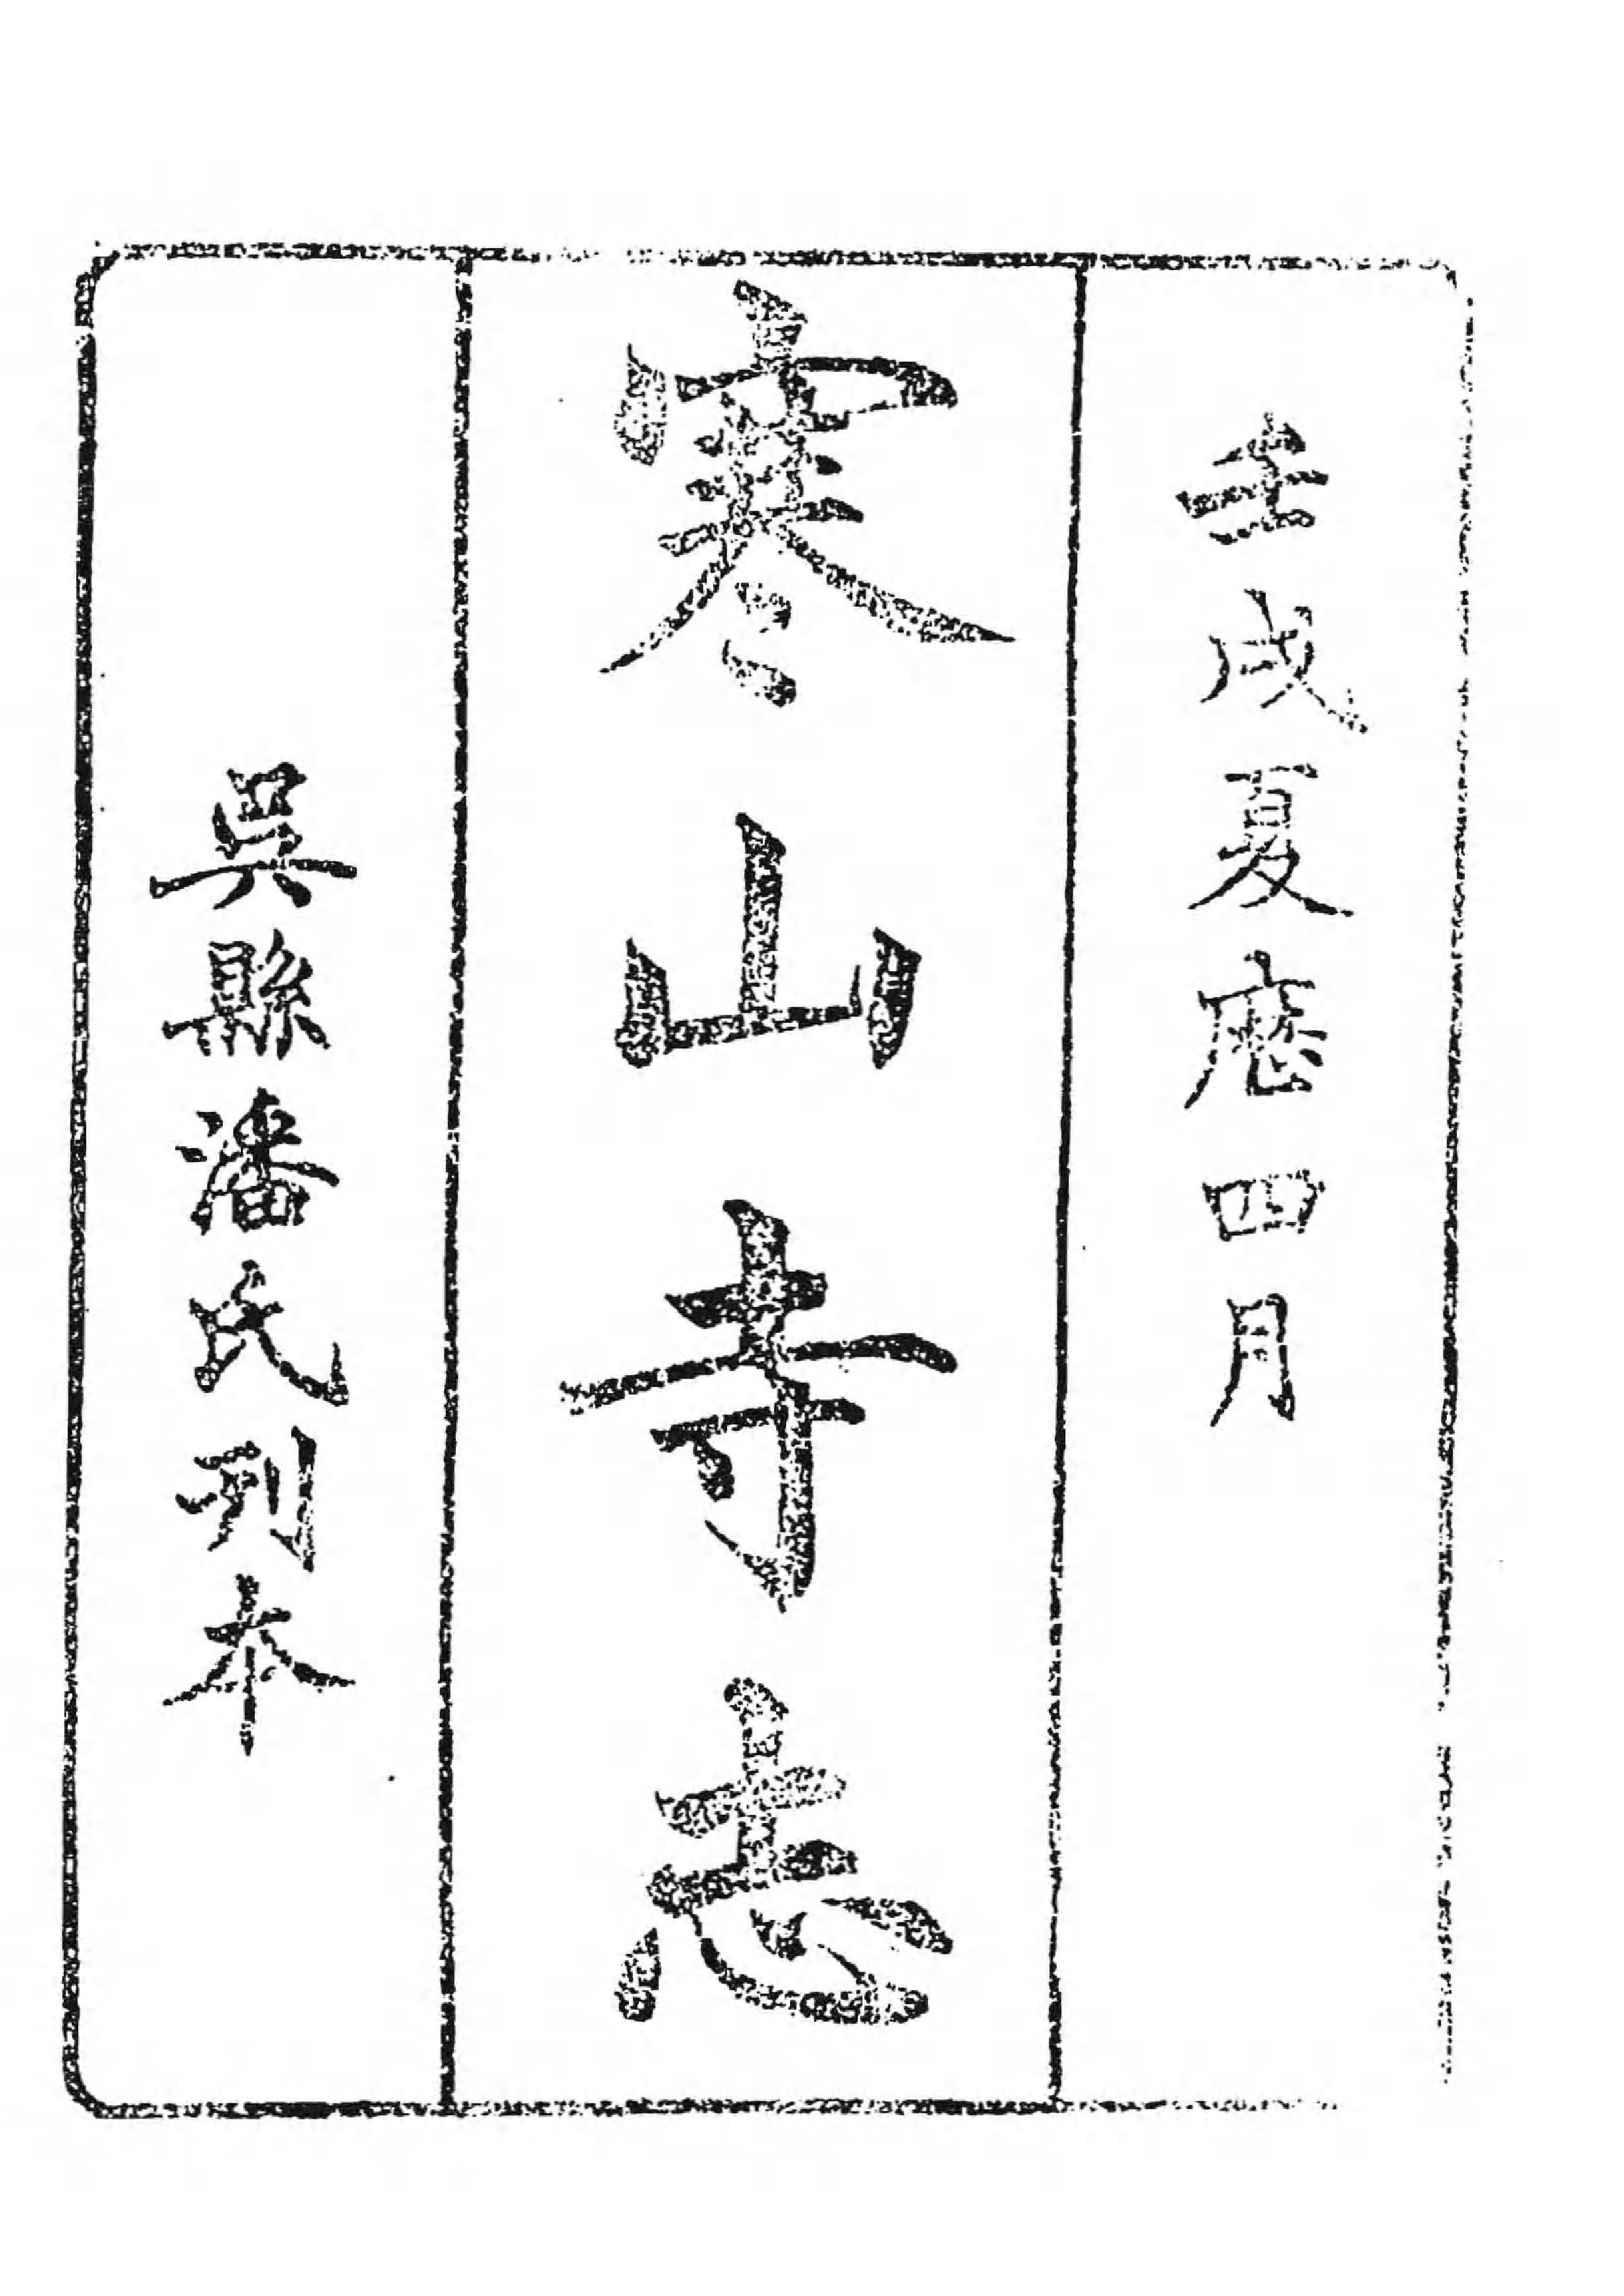 壬戌夏厯四月
寒山寺志
吳縣潘氏刊本